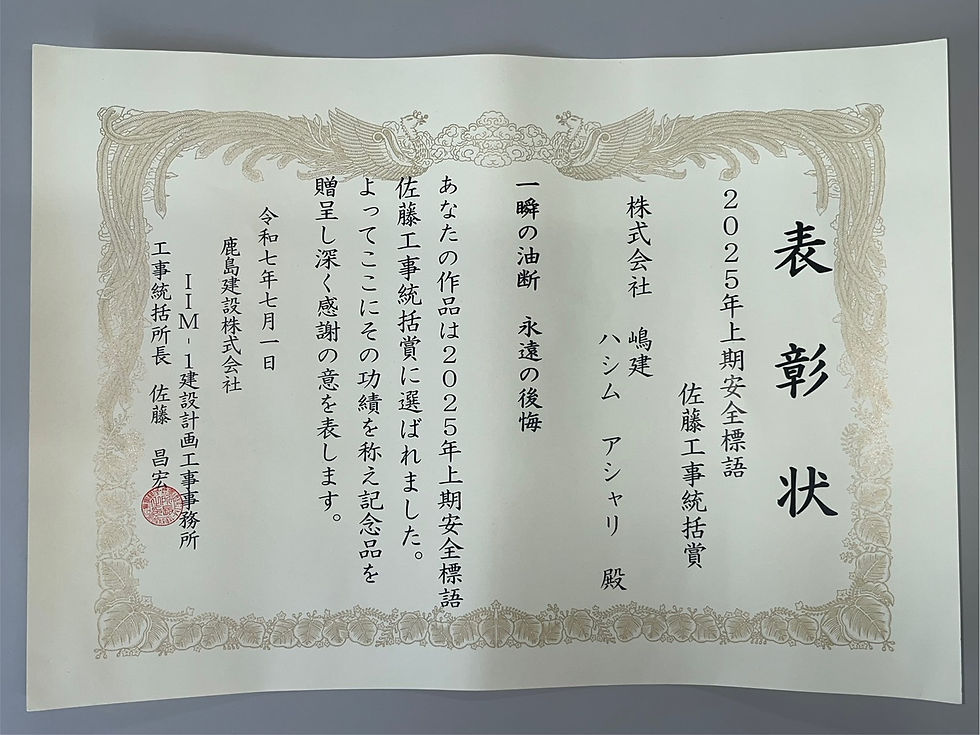 表彰状
2025年上期安全標語
佐藤工事統括賞
株式会社 嶋建
ハシム アシャリ 殿
一瞬の油断 永遠の後悔
あなたの作品は2025年上期安全標語
佐藤工事統括賞に選ばれました。
よってここにその功績を称え記念品を
贈呈し深く感謝の意を表します。
令和七年七月一日
鹿島建設株式会社
IIM-1建設計画工事事務所
工事統括所長 佐藤 昌宏